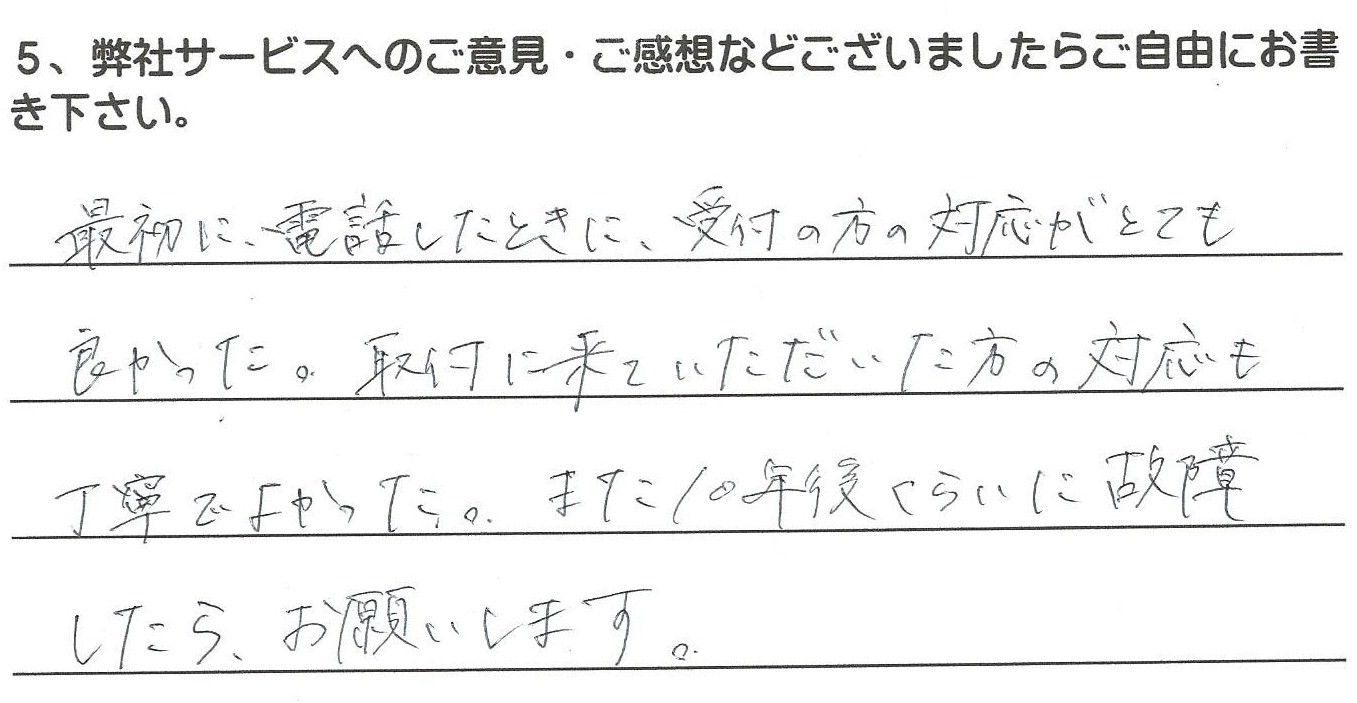 5、弊社サービスへのご意見・ご感想などございましたらご自由にお書
き下さい。
最初に、電話したときに、受付の方の対応がとても
良かった。取付に来ていただいた方の対応も
丁寧でよかった。また10年後くらいに故障
したら、お願いします。